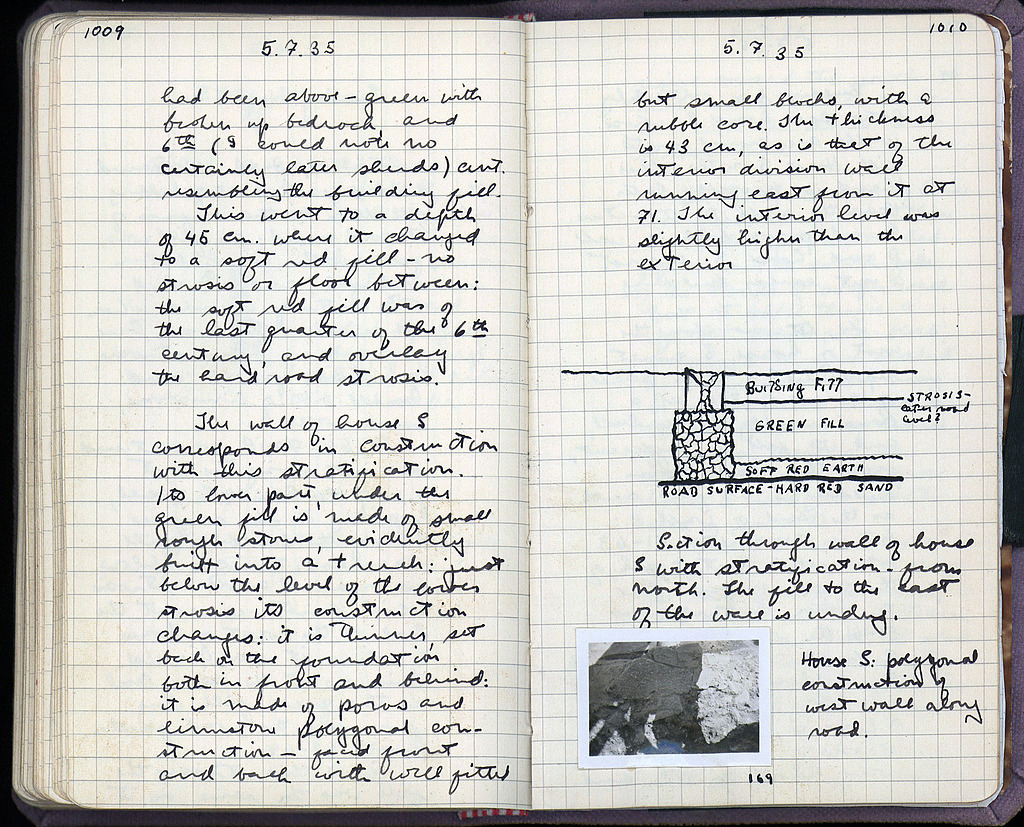 1009
5.7.35
had been above - green with
broken up bedrock, and
6th (I could note no
certainly later sherds) cent.
resembling the building fill.
This went to a depth
of 45 cm. where it changed
to a soft red fill - no
strosis or floor between:
the soft red fill was of
the last quarter of the 6th
century, and overlay
the hard road strosis.
The wall of house S
corresponds in construction
with this stratification.
Its lower part, under the
green fill is made of small
rough stones, evidently
built into a trench: just
below the level of the lower
strosis its construction
changes: it is thinner, set
back on the foundation
both in front and behind:
it is made of poros and
limestone polygonal con-
struction - faced front
and back with well fitted
1010
5.7.35
but small blocks, with a
rubble core. The thickness
is 43 cm, as is that of the
interior division wall
running east from it at
71. The interior level was
slightly higher than the
exterior
BUILDING FILL
STROSIS-
later road
level?
GREEN FILL
SOFT RED EARTH
ROAD SURFACE - HARD RED SAND
Section through wall of house
S with stratification - from
north. The fill to the east
of the wall is undug.
House S: polygonal
construction of
west wall along
road.
169